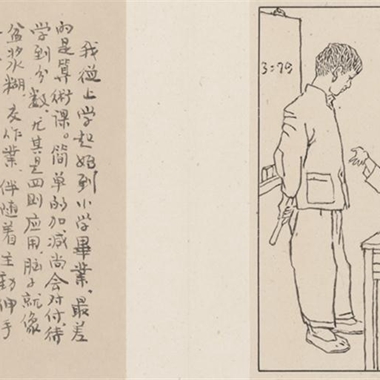 我從上学起始到小学畢業、最差
的是算術课。简单的加减尚会对付、待
学到分数、尤其是四则应用、脑子就像
盆浆糊、交作業、伴随着主動伸手